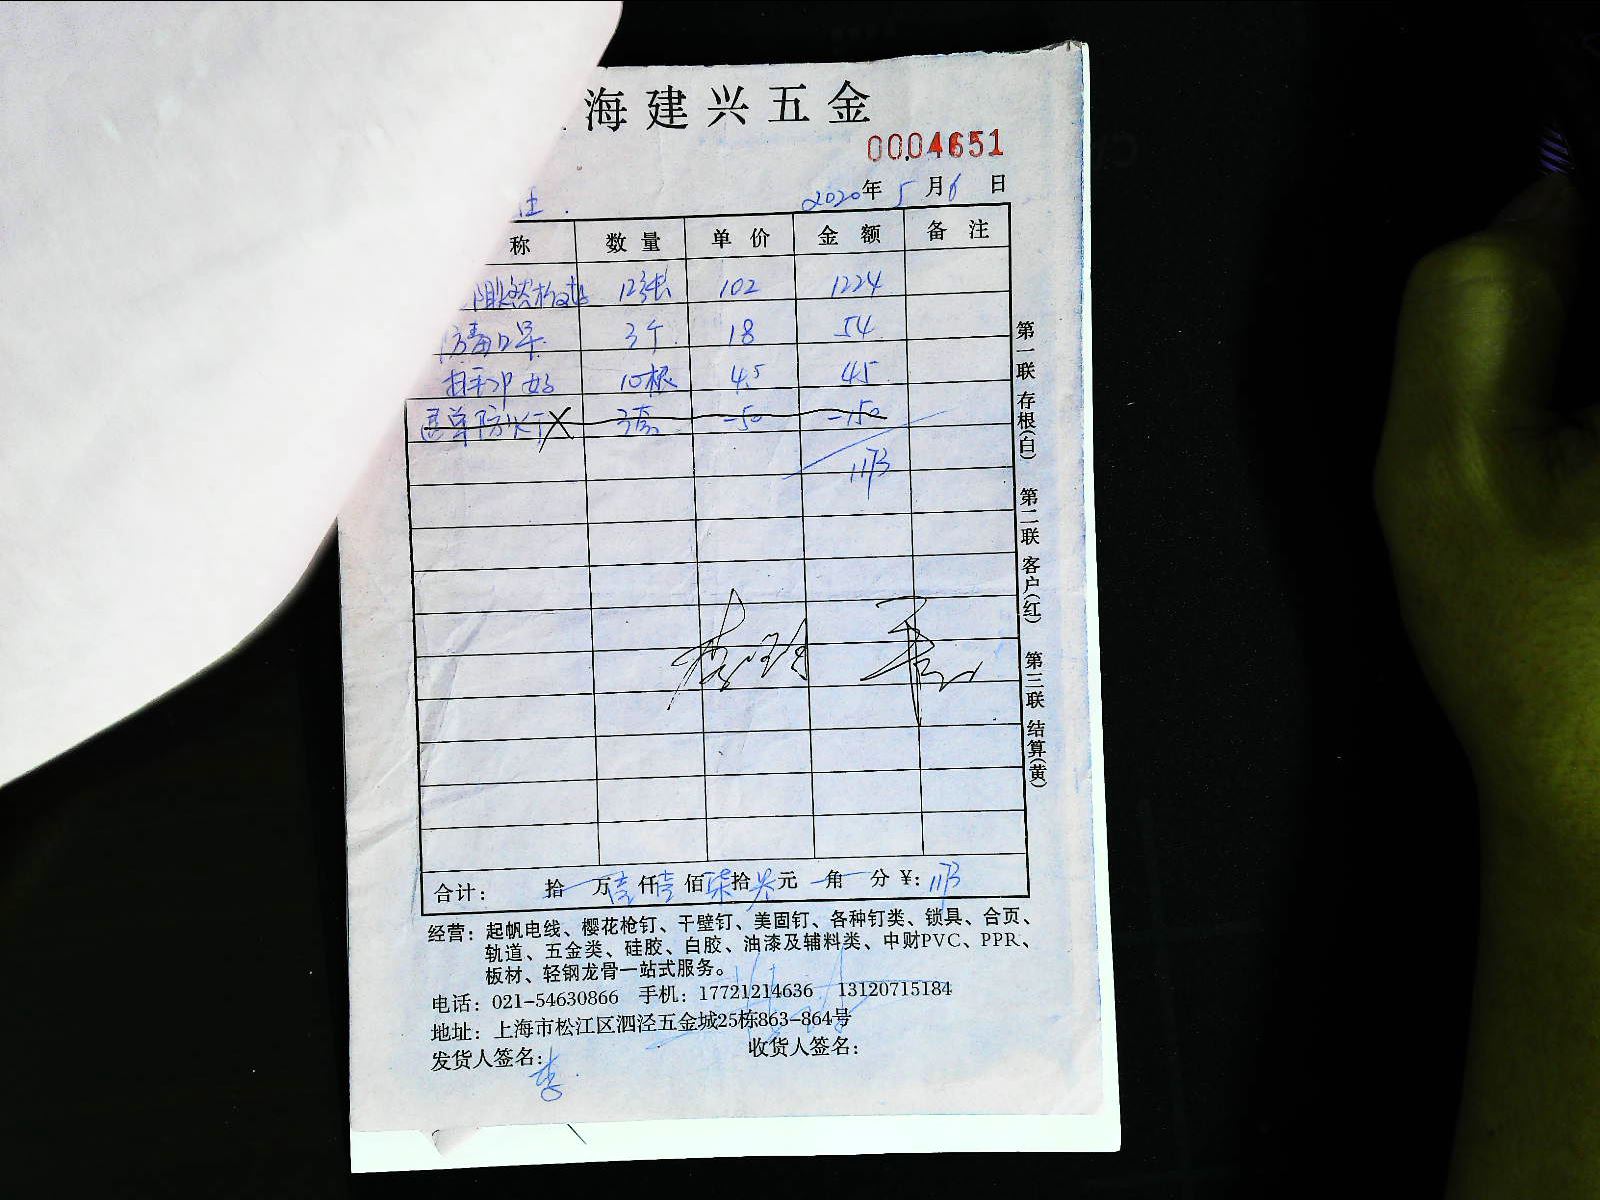 海建兴五金
0004651
2020年5月6日
称 数量 单价 金额 备注
12张 102 1224
防毒口罩 3个 18 54
10根 4.5 45
退单防火 3套 -50 -150
1173
第一联 存根(白) 第二联 客户(红) 第三联 结算(黄)
合计: 拾 万 壹 仟 壹 佰 柒 拾 叁 元 角 分 ¥: 1173
经营: 起帆电线、樱花枪钉、干壁钉、美固钉、各种钉类、锁具、合页、
轨道、五金类、硅胶、白胶、油漆及辅料类、中财PVC、PPR、
板材、轻钢龙骨一站式服务。
电话: 021-54630866 手机: 17721214636 13120715184
地址: 上海市松江区泗泾五金城25栋863-864号
发货人签名: 李 收货人签名: